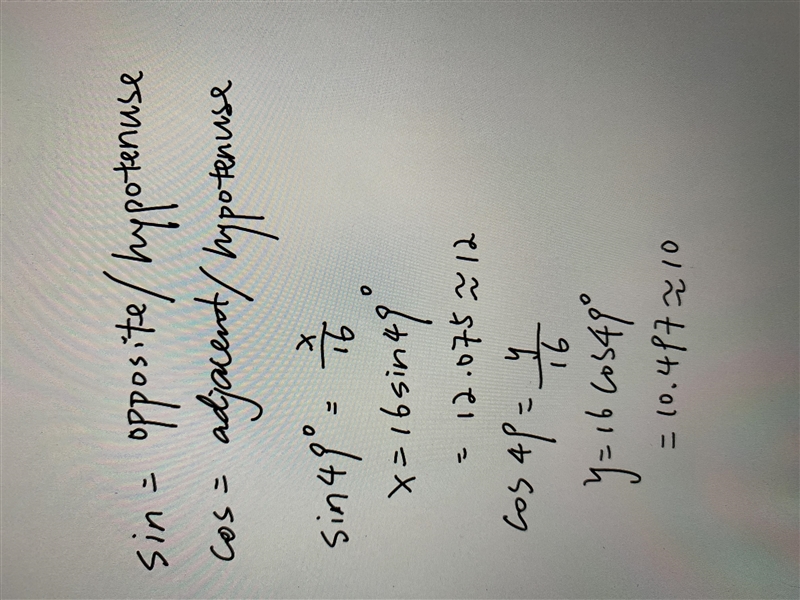 sin = opposite/hypotenuse
cos = adjacent/hypotenuse
sin49° = x/16
x = 16sin49°
= 12.075 ≈ 12
cos 49 = y/16
y = 16 cos49°
= 10.497 ≈ 10